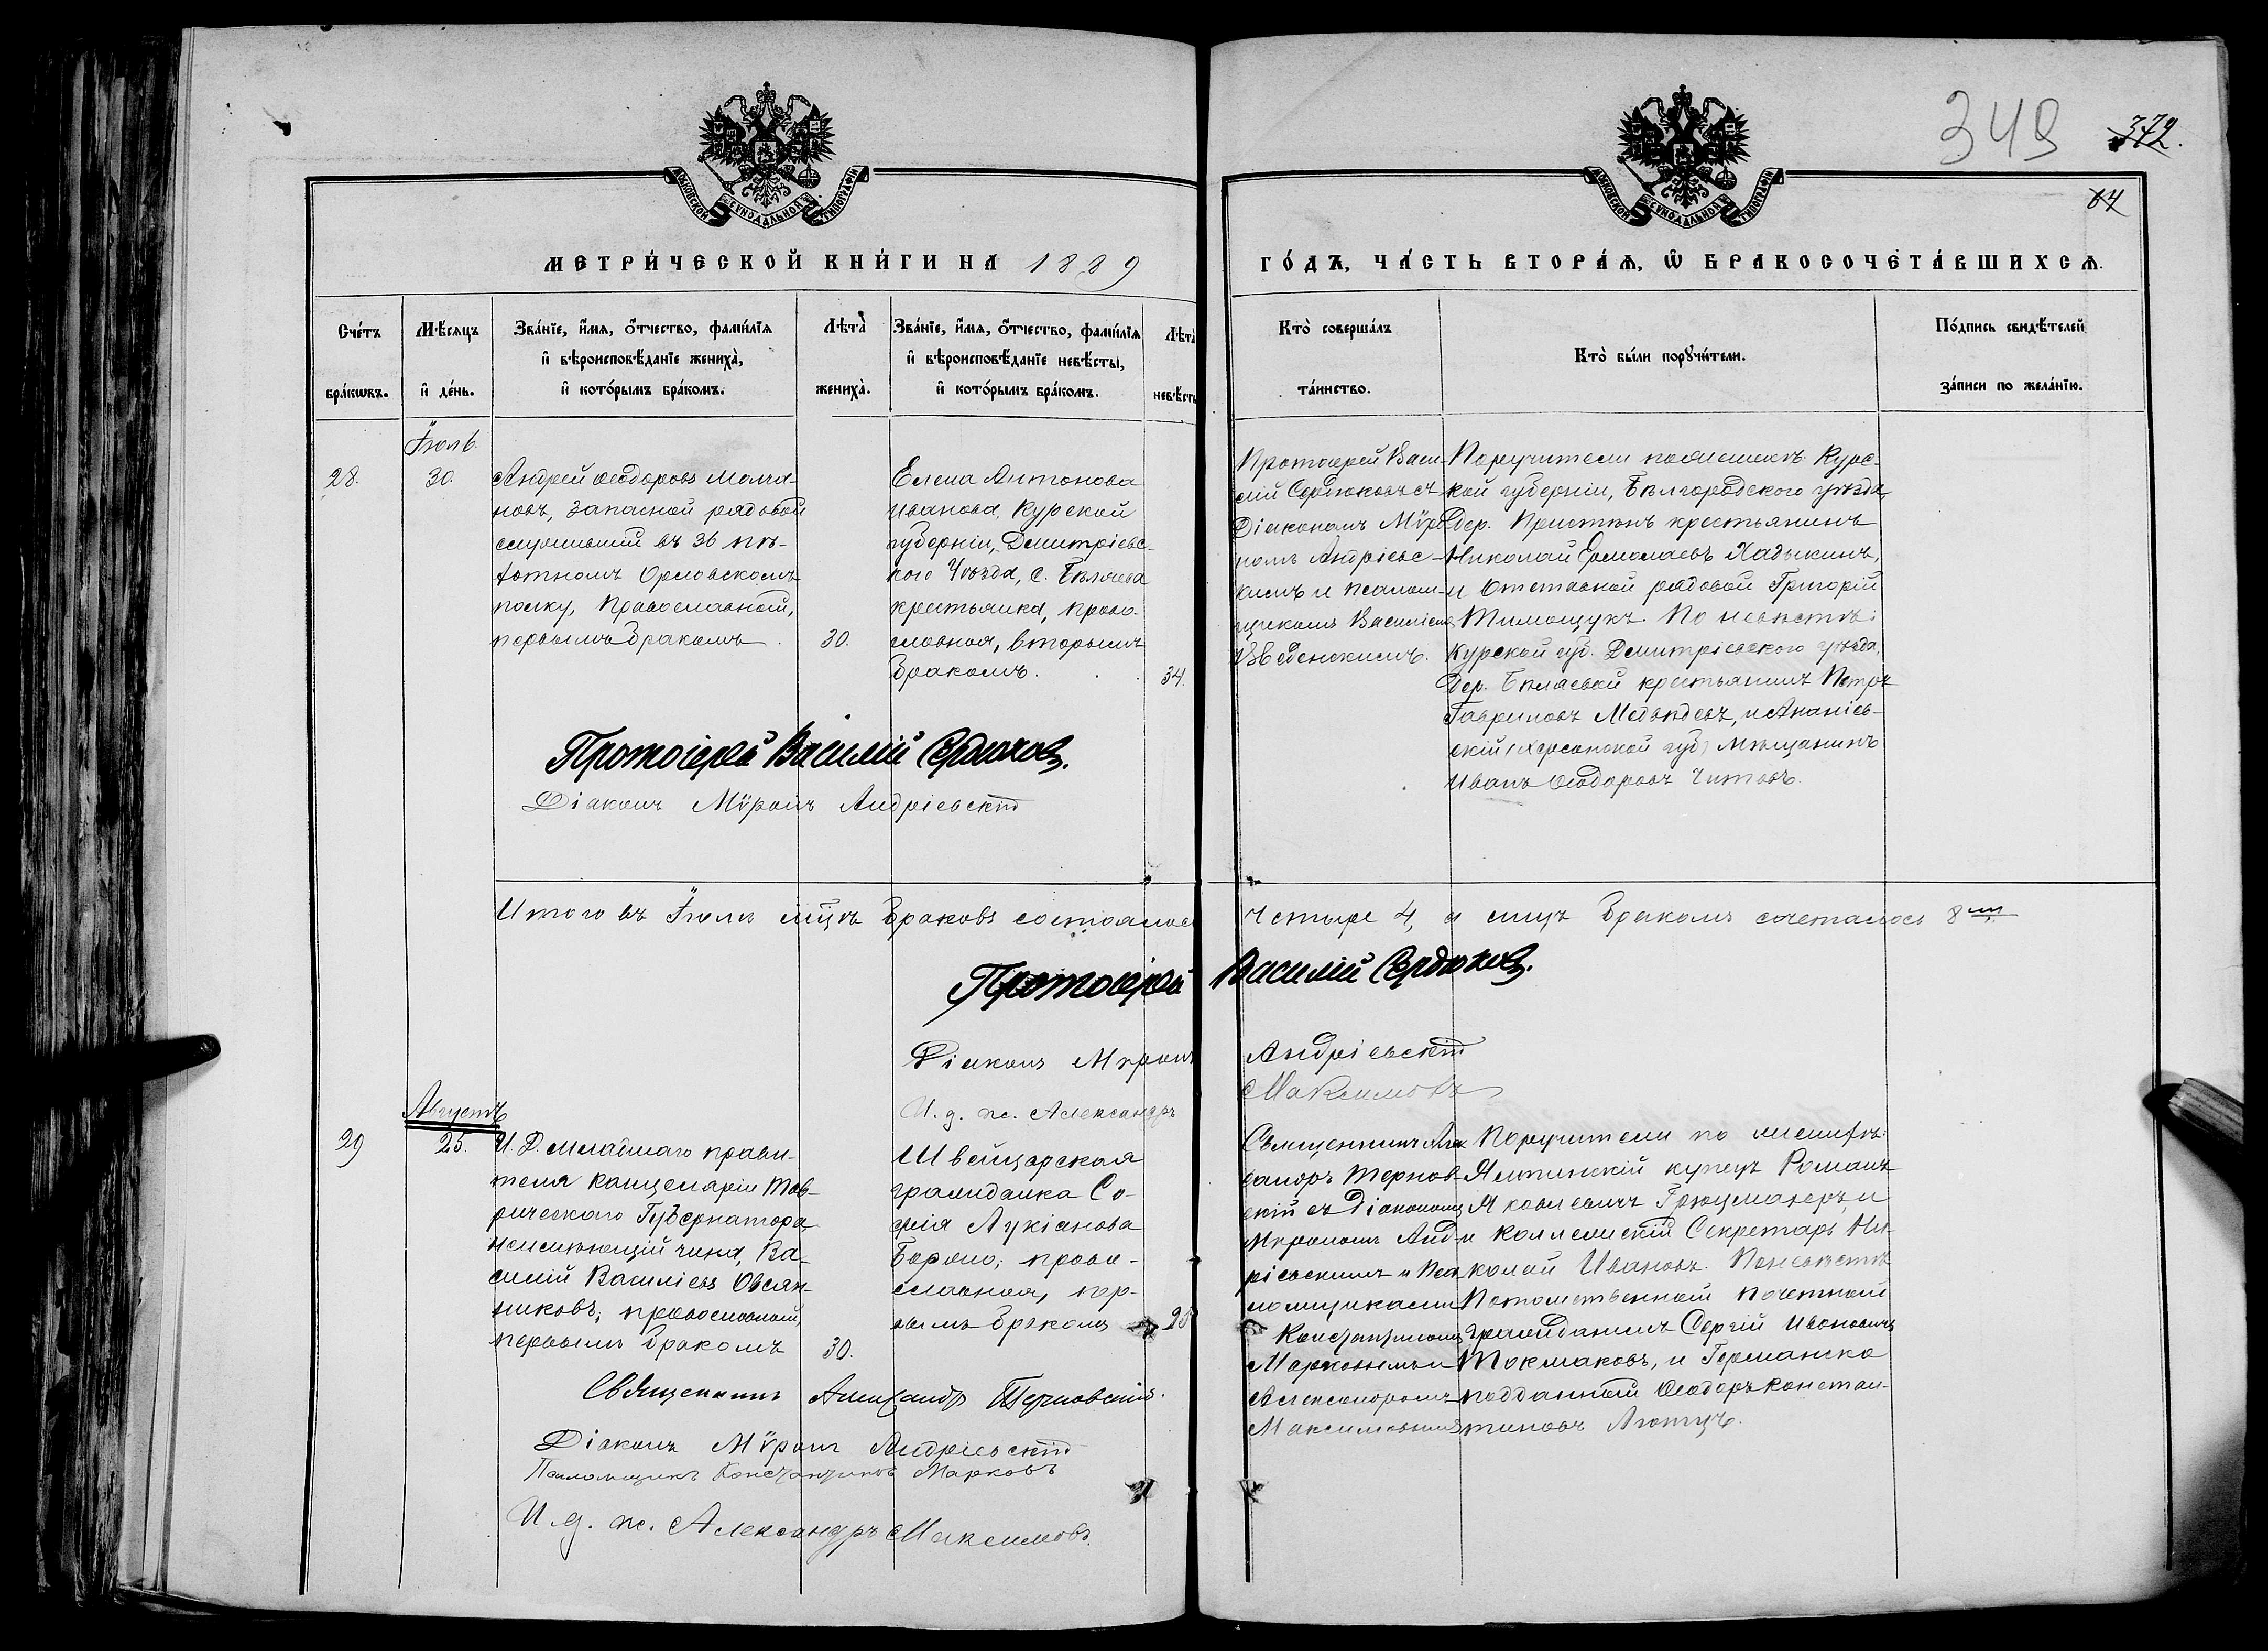 349 372.
64
МОСКОВСКОЙ СѴНОДАЛЬНОЙ ТИПОГРАФІИ
МОСКОВСКОЙ СѴНОДАЛЬНОЙ ТИПОГРАФІИ
МЕТРИ́ЧЕСКОЙ КНИ́ГИ НА 1889
ГО́ДЪ, ЧА́СТЬ ВТОРА́Ѧ, Ѡ҆ БРАКОСОЧЕТА́ВШИХСѦ.
Сче́тъ
бра́кѡвъ.
Мѣ́сѧцъ
и҆ де́нь.
Зва́нїе, и҆́мѧ, ѻ҆́тчество, фами́лїѧ
и҆ вѣроисповѣ́данїе жениха̀,
и҆ кото́рымъ бра́комъ.
Лѣта̀
жениха̀.
Зва́нїе, и҆́мѧ, ѻ҆́тчество, фами́лїѧ
и҆ вѣроисповѣ́данїе невѣ́сты,
и҆ кото́рымъ бра́комъ.
Лѣта̀
невѣ́сты
Кто̀ соверша́лъ
та́инство.
Кто̀ бы́ли порꙋчи́тели.
По́дпись свидѣ́телей
за́писи по жела́нїю.
Іюль.
28.
30.
Андрей Ѳеодоровъ Молча-
новъ, запасной рядовой
служившій въ 36 пѣ-
хотномъ Орловскомъ
полку, православный,
первымъ бракомъ
30.
Елена Антонова
Иванова, Курской
губерніи, Дмитріевс-
кого Уѣзда, с. Бѣляева
крестьянка, право-
славная, вторымъ
бракомъ.
34.
Протоіерей Васи-
лій Сердюковъ съ
Діакономъ Мѵро-
номъ Андріевс-
кимъ и псалом-
щикомъ Василіемъ
Поручители по женихѣ: Курс-
кой губерніи, Бѣлгородского уѣзда,
Дер. крестьянинъ
Николай Ермолаевъ Хадыкинъ,
и Отставной рядовой Григорій
Тимощукъ. По невѣстѣ:
Курской губ. Дмитріевского уѣзда,
Дер. Бѣляевой крестьянинъ Петръ
Гавриловъ Медвѣдевъ, и Ананіев-
скій (Херсонской губ) мѣщанинъ
Иванъ Ѳеодоровъ Титовъ.
Протоіерей Василій Сердюковъ.
Діаконъ Мѵронъ Андріевскій
Итого въ Іюлѣ мѣсяцѣ браковъ состоялось четыре 4, а лицъ бракомъ сочеталось 8
Протоіерей Василій Сердюковъ.
Діаконъ Миронъ Андріевскій
И. д. пс. Александръ Максимовъ
Августъ
29
25.
И. Д. младшаго прави-
теля канцеляріи Тав-
рическаго Губернатора
неимѣющій чина, Ва-
силій Василіевъ Овсян-
никовъ; православный,
первымъ бракомъ
30.
Швейцарская
гражданка Со-
фія Лукіанова
право-
славная, пер-
вымъ бракомъ
25
Священникъ Алек-
сандръ Тернов-
скій съ Діакономъ
Мирономъ Анд-
ріевскимъ и Пса-
ломщиками
Константиномъ
Марковымъ и
Александромъ
Максимовымъ
Поручители по женихѣ:
Ялтинскій купецъ Романъ
Яковлевичъ и
и Коллежскій Секретарь Ни-
колай Ивановъ. По невѣстѣ
Потомственный почетный
гражданинъ Сергій Ивановичъ
Токмаковъ, и Германско
подданный Ѳеодоръ Констан-
тиновъ
Священникъ Александръ Терновскій.
Діаконъ Мѵронъ Андріевскій
Псаломщикъ Константинъ Марковъ
И. д. пс. Александръ Максимовъ.